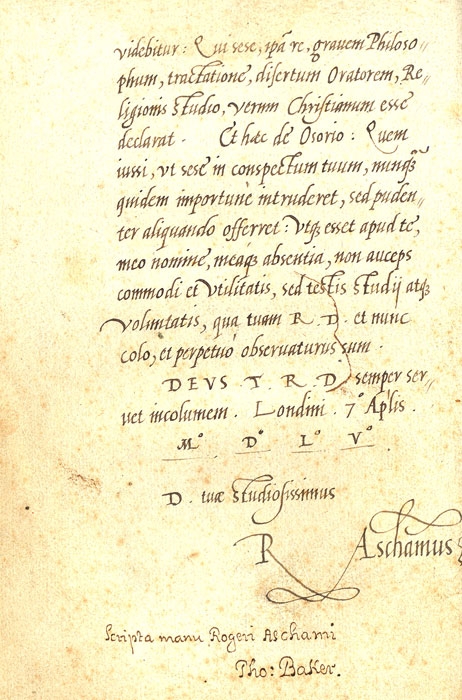 videbitur: Qui sese, ipā re, gravem Philoso⸗
phum, tractatione, disertum Oratorem, Re⸗
ligionis studio, verum Christianum esse
declarat. Et hæc de Osorio: Quem
iussi, vt sese in conspectum tuum, nunq̄
quidem importunè intruderet, sed puden⸗
ter aliquando offerret: Vtq; esset apud te,
meo nomine, meaq; absentia, non auceps
commodi et Vtilitatis, sed testis studij atq;
Voluntatis, qua tuam R. D. et nunc
colo, et perpetuò observaturus sum.
DEVS T. R. D. semper ser⸗
uet incolumem. Londini. 7° Aplis.
M° D° L° V°
D. tuæ studiosissimus
R Aschamus
Scripta manu Rogeri Aschami
Tho: Baker.